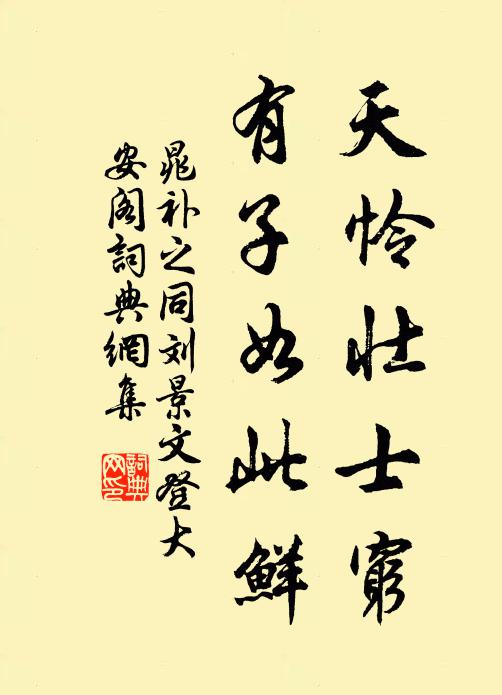 天怜壮士穷
有子如此鲜
晁补之同刘景文登大
安阁詞典網集
詞典
网印